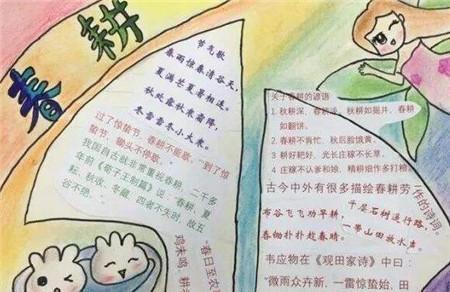 春耕
节气歌
春雨惊春清谷天，
夏满芒夏暑相连。
秋处露秋寒霜降，
冬雪雪冬小大寒。
过了惊蛰节，春耕不能歇。"到了惊
蛰节，锄头不停歇。"
我国自古就非常重视春耕，二千多
年前《荀子王制篇》说："春耕、夏
耘、秋收、冬藏，四者不失时，故五
谷不绝。"
"春日至农
鸡未鸣，耕
关于春耕的谚语
1. 秋耕深、春耕浅，秋耕如掘井，春耕
如翻饼。
2 春耕不肯忙，秋后脸饿黄。
3 耕好耙好，光长庄稼不长草。
4 庄稼不认爹和娘，精耕细作多打粮。
古今中外有很多描绘春耕劳作的诗词。
布谷飞飞劝早耕，
春锄扑扑趁春晴。
千层石树通行路，
一带山田放水声。
韦应物在《观田家诗》中曰：
"微雨众卉新，一雷惊蛰始，田